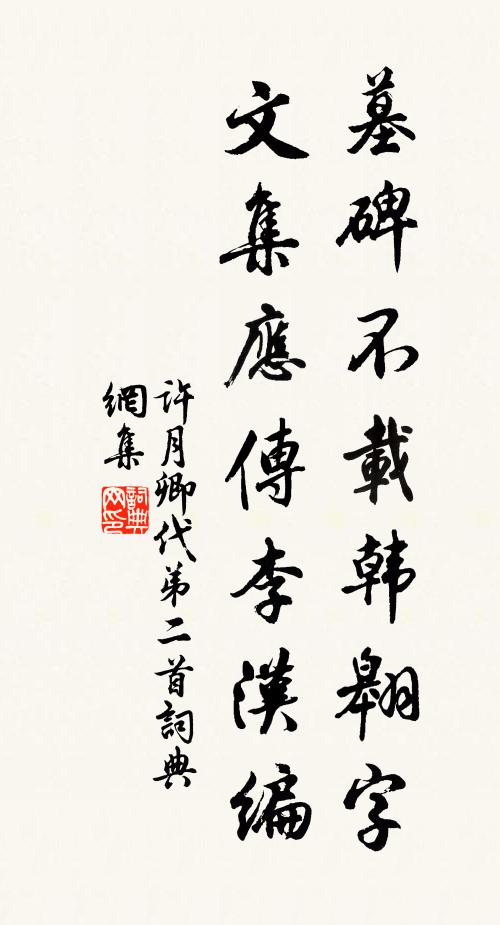 墓碑不載韩翱字
文集應傳李漢編
許月卿代第二首詞典
網集
詞典網印